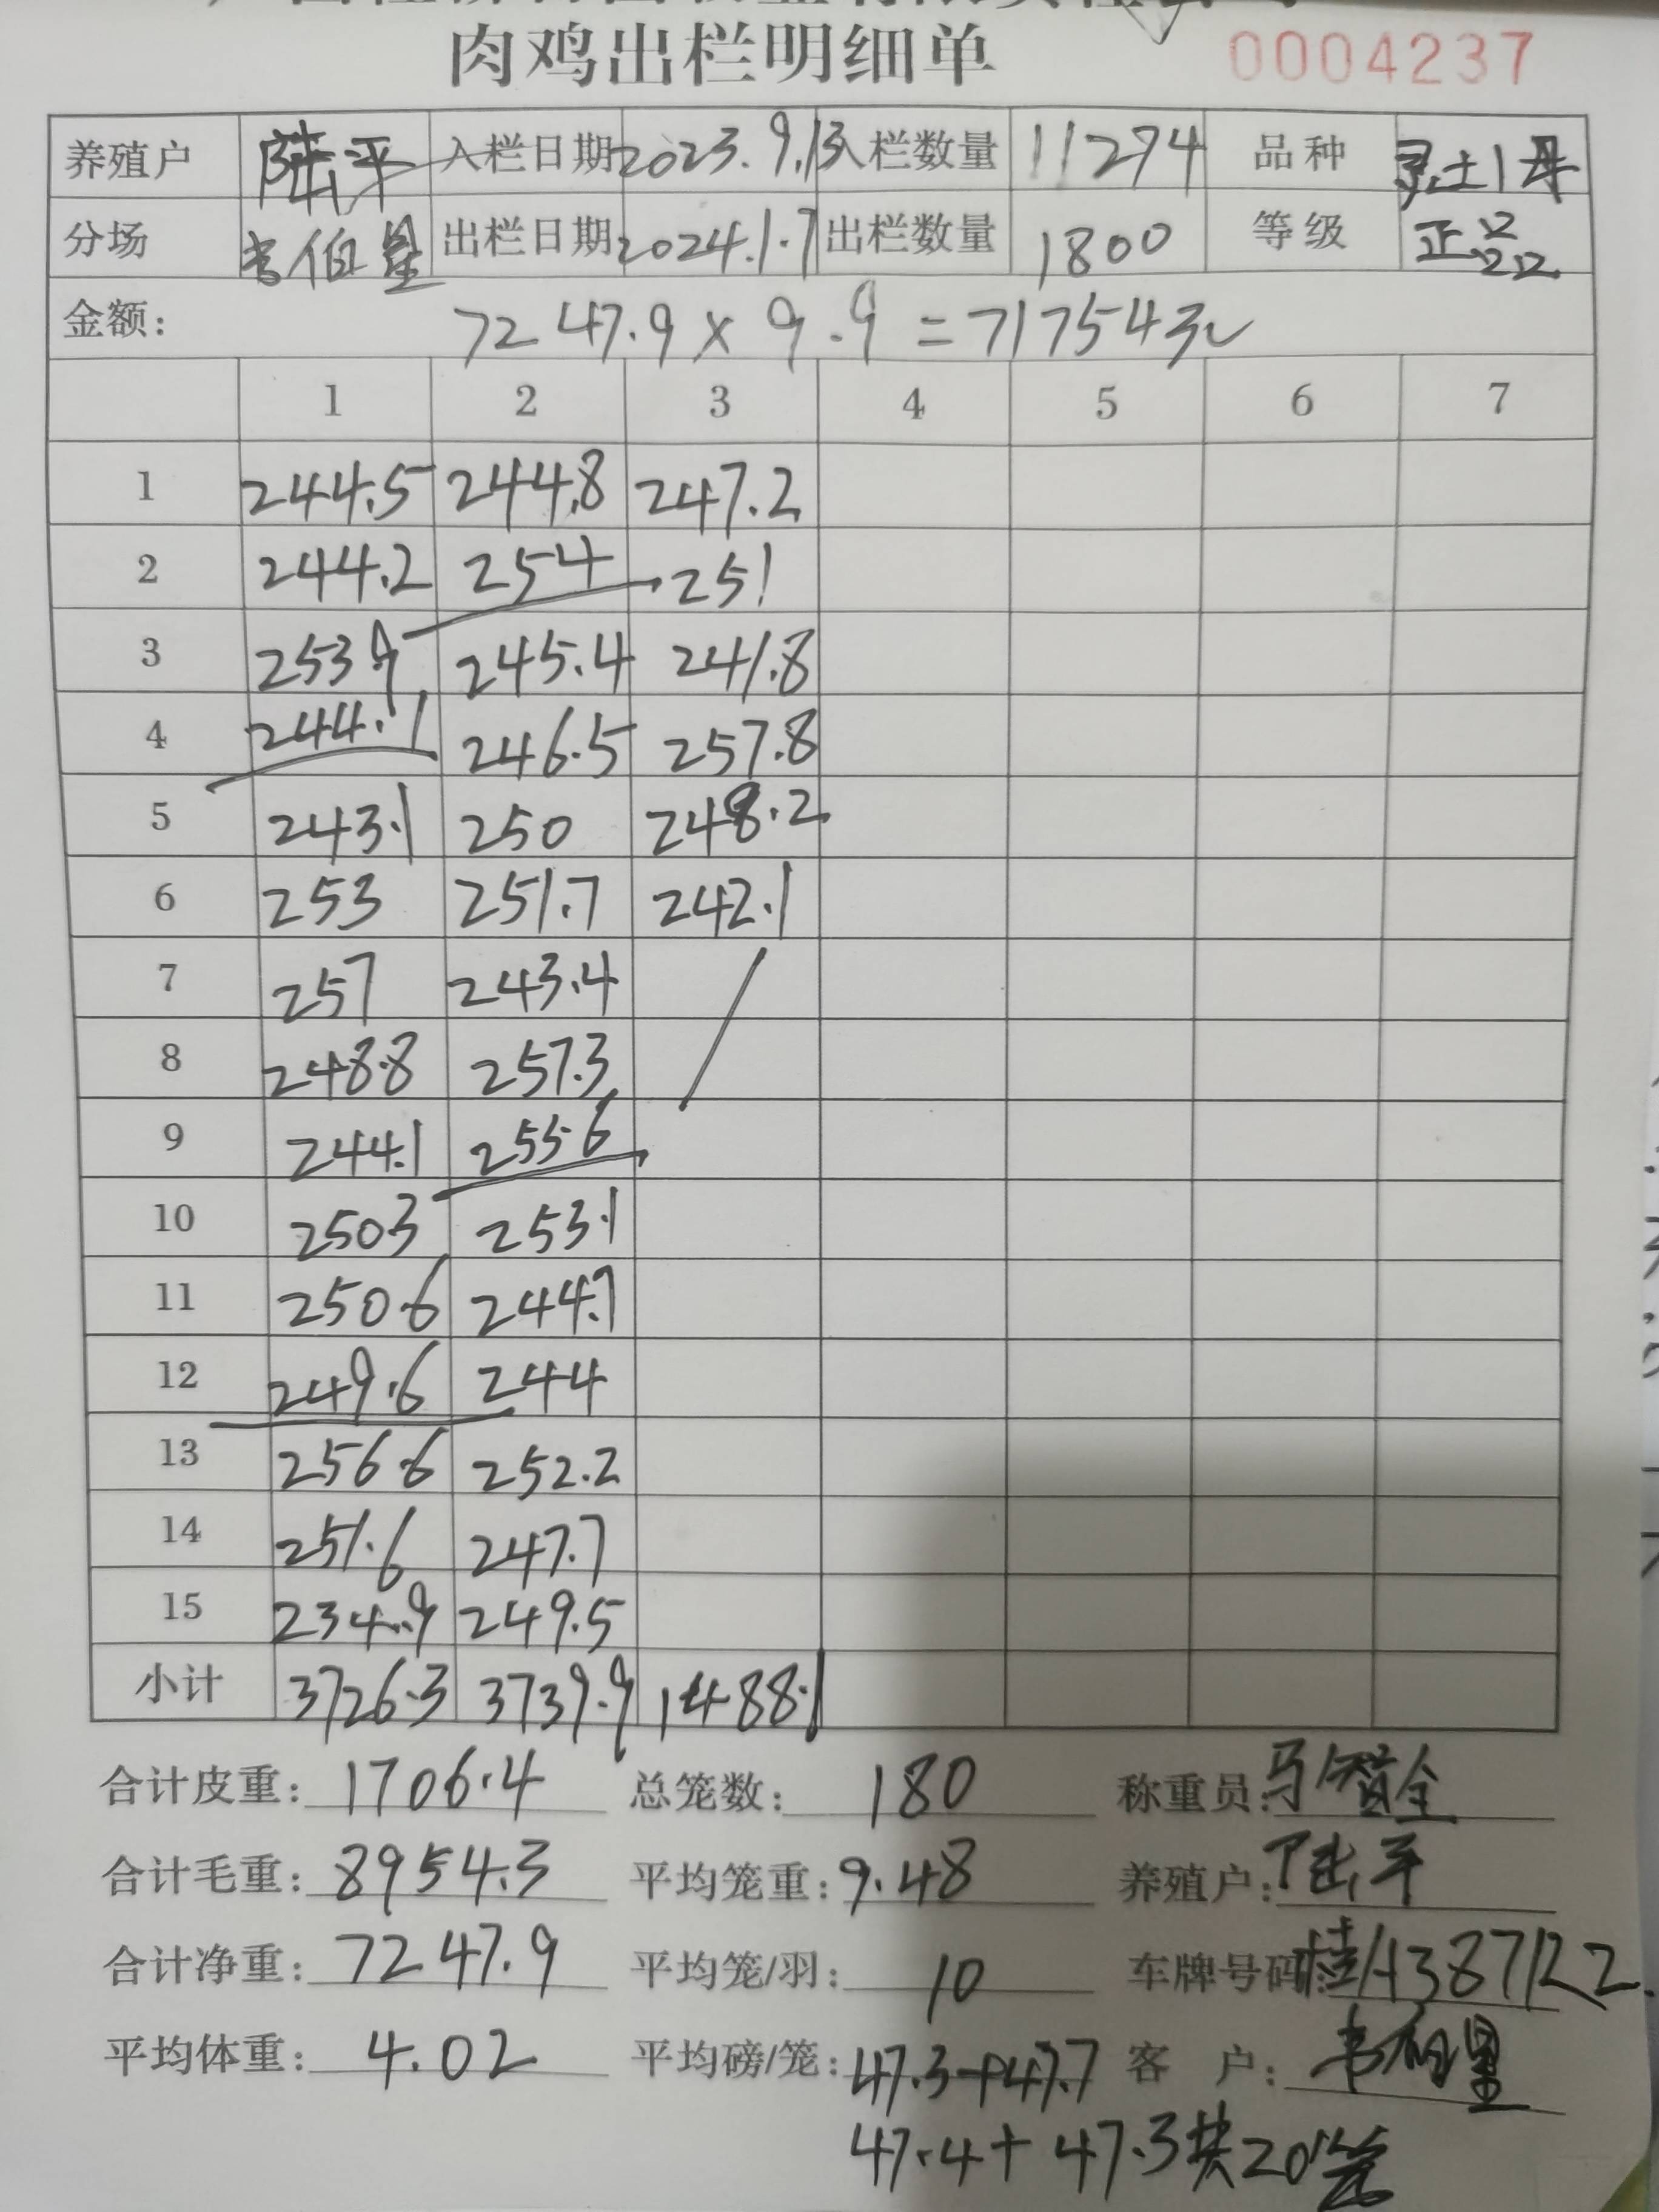 肉鸡出栏明细单 0004237
养殖户 陆平 入栏日期 2023.9.13 入栏数量 11274 品种 灵土1母
分场 韦伯星 出栏日期 2024.1.7 出栏数量 1800 等级 正品
金额: 7247.9×9.9=71754元
1 2 3 4 5 6 7
1 244.5 244.8 247.2
2 244.2 254 251
3 253.9 245.4 241.8
4 244.1 246.5 257.8
5 243.1 250 248.2
6 253 251.7 242.1
7 257 243.4
8 248.8 257.3
9 244.1 255.6
10 250.3 253.1
11 250.6 244.7
12 249.6 244
13 256.6 252.2
14 251.6 247.7
15 234.9 249.5
小计 3726.3 3739.9 1488.1
合计皮重: 1706.4 总笼数: 180 称重员:
合计毛重: 8954.3 平均笼重: 9.48 养殖户: 陆平
合计净重: 7247.9 平均笼/羽: 10 车牌号码: 桂A387R2
平均体重: 4.02 平均磅/笼: 47.3+47.7 客 户:
47.4+47.3共20笼